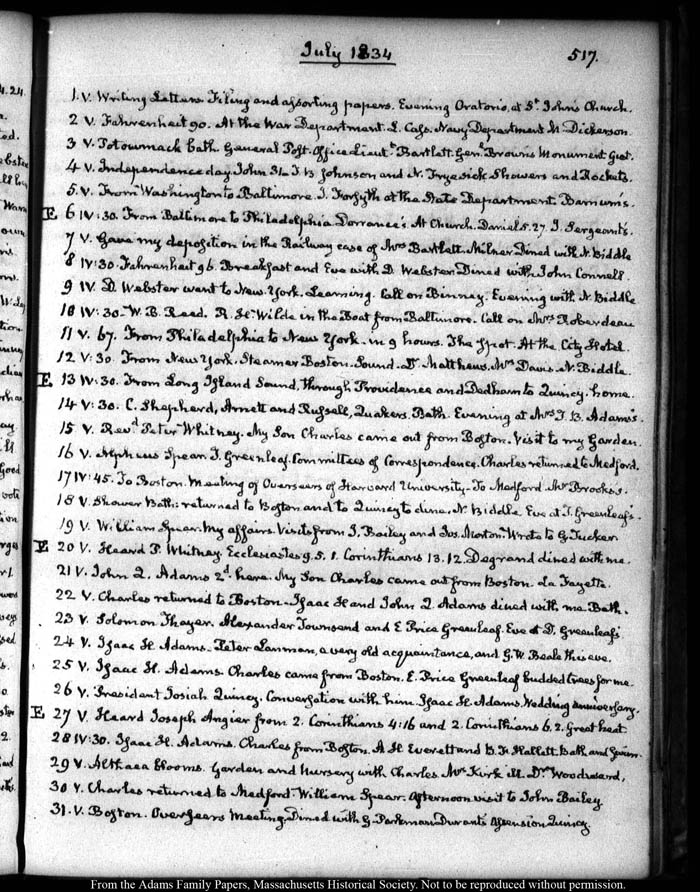 July 1834 517.
1. V. Writing Letters. Filing and assorting papers. Evening Oratorio, at St. John's Church.
2 V. Fahrenheit 90. At the War Department. L. Cass. Navy Department M. Dickerson
3 V. Potowmack bath. General Post-Office Lieutt. Bartlett. Genl. Browns Monument Gust.
4 V. Independence day. John 31. T. B Johnson and N. Frye sick Showers and Rockets.
5. V. From Washington to Baltimore. J. Forsyth at the State Department. Barnum's.
E 6 IV: 30. From Baltimore to Philadelphia Dorrance's. At Church. Daniel 5. 27. J. Sergeant's.
7 V. Gave my deposition in the Railway case of Bartlett. Milnor. Dined with N. Biddle
8 IV: 30. Fahrenheit 96. Breakfast and Eve with D. Webster. Dined with John Connell
9 IV. D. Webster went to New-York. Learning. Call on Binney. Evening with N. Biddle
10 IV: 30. W. B. Reed. R. H. Wilde in the Boat from Baltimore. Call on Mrs Roberdeau
11 V. 67. From Philadelphia to New York. in 9 hours. The Spot. At the City Hotel.
12 V: 30. From New York. Steamer Boston. Sound. Dr. Matthews. Mrs Davis. N. Biddle.
E 13 IV: 30. From Long Island Sound, through Providence and Dedham to Quincy. home.
14 V: 30. C. Shepherd, Arnett and Russell, Quakers. Bath. Evening at Mrs T. B. Adams's.
15 V. Revd. Peter Whitney. My Son Charles came out from Boston. Visit to my Garden.
16 V. Alpheus Spear. J. Greenleaf. Committees of Correspondence. Charles returned to Medford.
17 IV: 45. To Boston. Meeting of Overseers of Harvard University. To Medford Mr Brooks's.
18 V. Shower Bath: returned to Boston and to Quincy to dine. N. Biddle Eve at T. Greenleaf's.
19 V. William Spear. My affairs. Visits from J. Bailey and Jos. Morton. Wrote to G. Tucker
E 20 V. Heard P. Whitney. Ecclesiastes 9. 5. 1. Corinthians 13. 12. Degrand dined with me.
21 V. John Q. Adams 2d. here. My Son Charles came out from Boston. La Fayette.
22 V. Charles returned to Boston. Isaac H and John Q. Adams dined with me Bath.
23 V. Solomon Thayer. Alexander Townsend and E Price Greenleaf. Eve at D. Greenleafs
24 V. Isaac H. Adams. Peter Lanman, a very old acquaintance, and G. W. Beale this eve.
25 V. Isaac H. Adams. Charles came from Boston. E. Price Greenleaf budded trees for me
26 V. President Josiah Quincy. Conversation with him. Isaac H. Adams. Wedding anniversary.
E 27 V. Heard Joseph Angier from 2. Corinthians 4: 16 and 2. Corinthians 6. 2. Great heat
28 IV: 30. Isaac H. Adams. Charles from Boston. A H Everett and B. F. Hallett Bath and Swim.
29 V. Althaea blooms. Garden and Nursery with Charles Mrs Kirk ill. Dr. Woodward,
30 V. Charles returned to Medford. William Spear. Afternoon visit to John Bailey
31. V. Boston. Overseers Meeting. Dined with G. Parkman. Durant's Ascension Quincy.
From the Adams Family Papers, Massachusetts Historical Society. Not to be reproduced without permission.